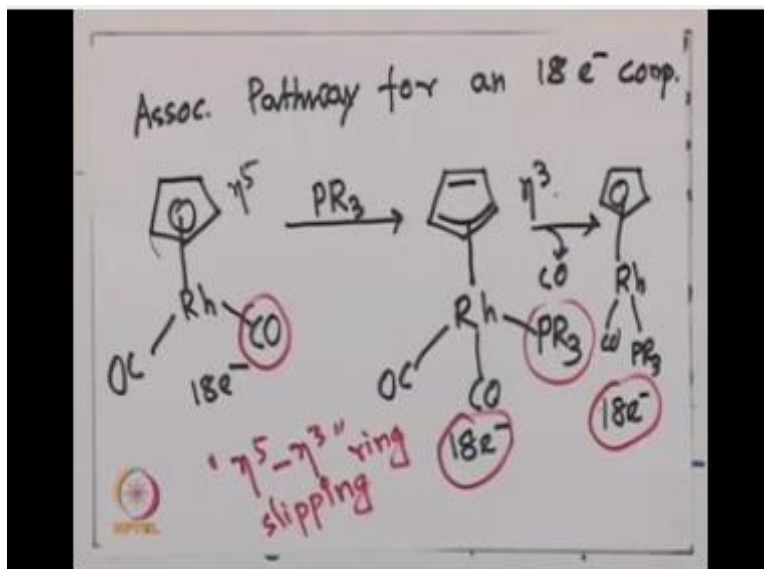 Assoc. Pathway for an 18 e⁻ comp.
η⁵
PR₃
η³.
CO
Rh
CO
OC
18e⁻
Rh
PR₃
OC
CO
18e⁻
Rh
CO
PR₃
18e⁻
"η⁵-η³" ring
slipping
NPTEL